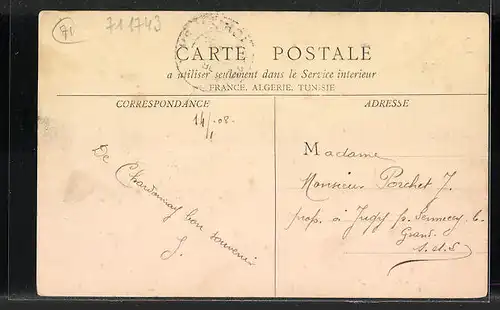 71
711743
CARTE POSTALE
a utiliser seulement dans le Service interieur
FRANCE, ALGERIE, TUNISIE
CORRESPONDANCE
ADRESSE
14/1 - 08 -
De Chardonnay bon souvenir
J.
Madame
Monsieur Porchet J.
prop. à Jugy p. Sennecey l.
Grand
S. et L